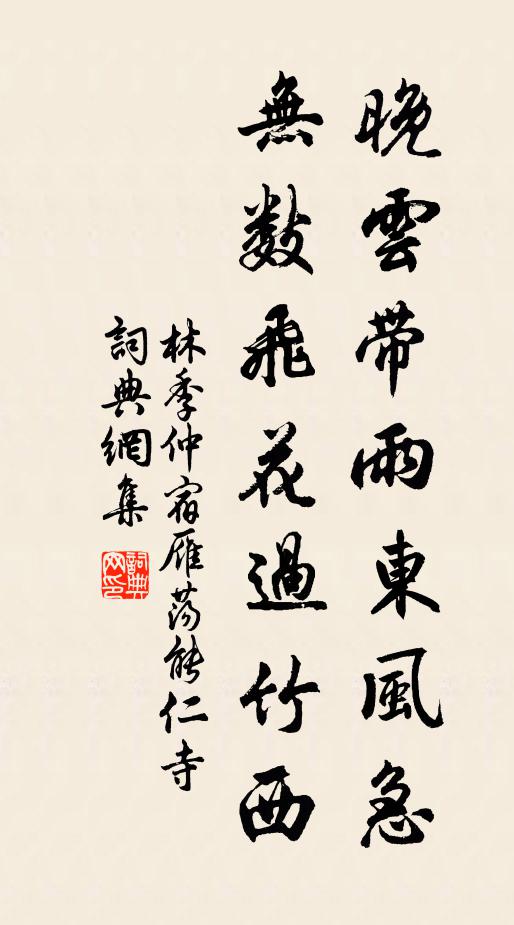 晚雲帶雨東風急
無數飛花過竹西
林季仲宿雁蕩能仁寺
詞典網集
詞典網印